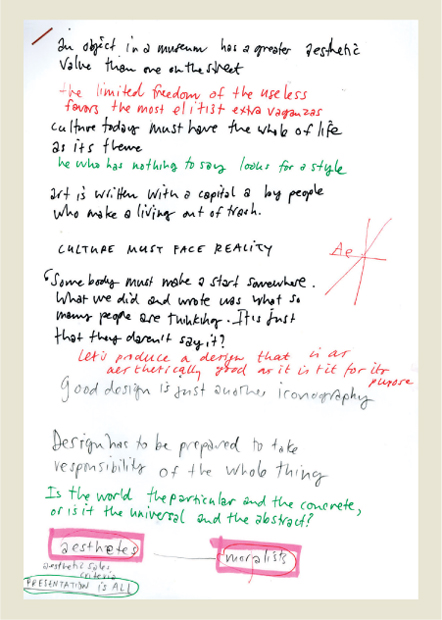 An object in a museum has a greater aesthetic
value than one on the street
the limited freedom of the useless
favors the most elitist extra vaganzas
culture today must have the whole of life
as its theme
he who has nothing to say looks for a style
art is written with a capital a by people
who make a living out of trash.
CULTURE MUST FACE REALITY
Ae
"Some body must make a start somewhere.
What we did and wrote was what so
many people are thinking. It is just
that they daren't say it?
Let's produce a design that is as
aesthetically good as it is fit for its
purpose
Good design is just another iconography
Design has to be prepared to take
responsibility of the whole thing
Is the world the particular and the concrete,
or is it the universal and the abstract?
aesthetes
moralists
aesthetic sales
criteria
PRESENTATION IS ALL